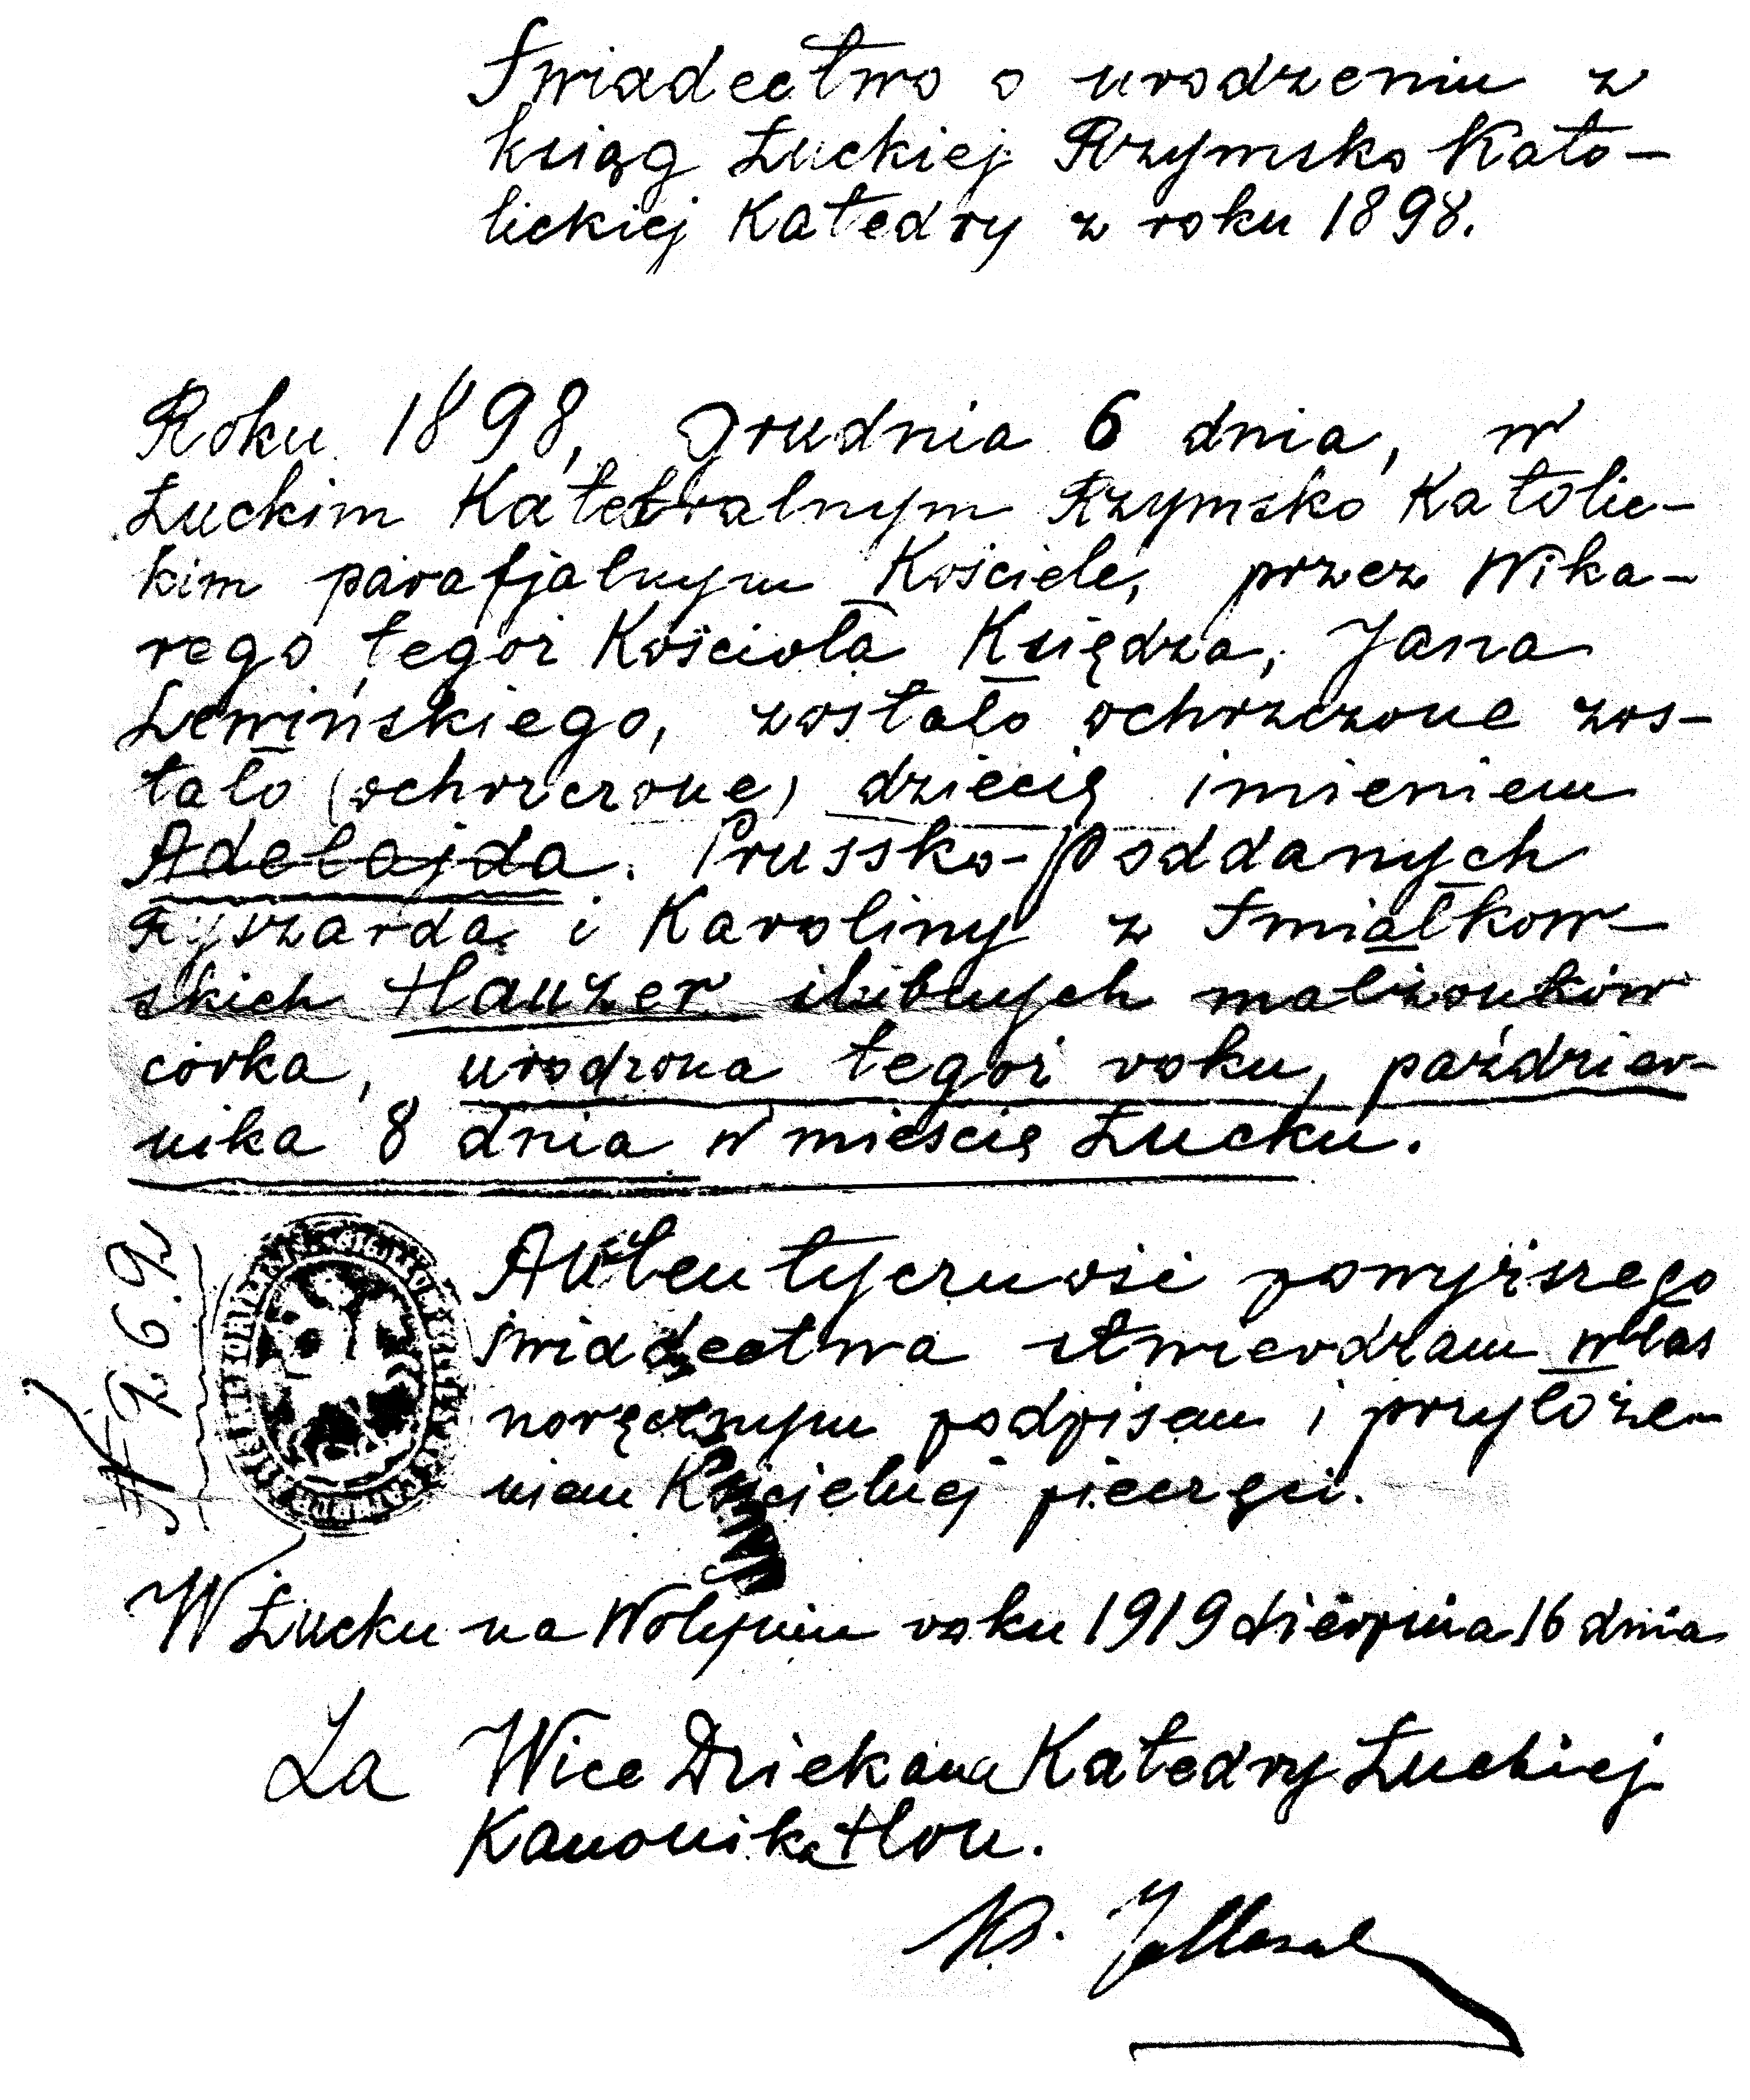 Świadectwo o urodzeniu z
ksiąg Łuckiej Rzymsko Kato-
lickiej Katedry z roku 1898.
Roku 1898, Grudnia 6 dnia, w
Łuckim Katedralnym Rzymsko Katolic-
kim parafjalnym Kościele, przez Wika-
rego tegoż Kościoła Księdza, Jana
Lewińskiego, zostało ochrzczone zos-
tało (ochrzczone) dziecię imieniem
Adelajda. Prussko-Poddanych
Ryszarda i Karoliny z Śmiałkow-
skich Hauzer ślubnych małżonków
córka, urodzona tegoż roku, paździer-
nika 8 dnia w mieście Łucku.
Autentyczność powyższego
świadectwa stwierdzam włas
noręcznym podpisem i przyłoże-
niem Kościelnej pieczęci.
N 269.
W Łucku na Wołyniu roku 1919 sierpnia 16 dnia
Za Wice Dziekana Katedry Łuckiej
Kanonika Hon.
Ks.